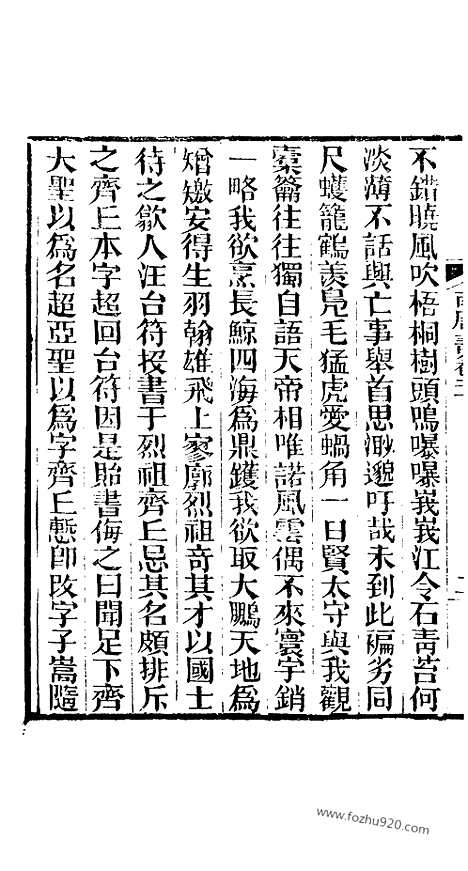 不錯曉風吹梧桐樹頭鳴嚗嚗峩峩江令石靑苔何
淡薄不話與亡事舉首思渺邈吁哉未到此褊劣同
尺蠖籠鶴羡鳧毛猛虎愛蝸角一日賢太守與我觀
橐籥往往獨自語天帝相唯諾風雲偶不來寰宇銷
一略我欲烹長鯨四海爲鼎鑊我欲取大鵬天地爲
矰繳安得生羽翰雄飛上寥廓烈祖奇其才以國士
待之歙人汪台符投書于烈祖齊丘忌其名頗排斥
之齊丘本字超回台符因是貽書侮之曰聞足下齊
大聖以爲名超亞聖以爲字齊丘慙卽改字子嵩隨
www.fozhu920.com